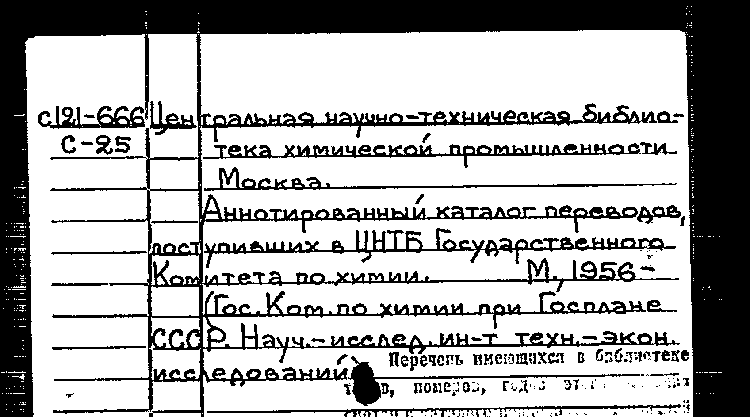 с121-666 Центральная научно-техническая библио-
С-25 тека химической промышленности
Москва.
Аннотированный каталог переводов,
поступивших в ЦНТБ Государственного
Комитета по химии. М., 1956-
(Гос. Ком. по химии при Госплане
СССР. Науч.-исслед. ин-т техн.-экон.
исследований)
Перечень имеющихся в библиотеке
номеров, годов